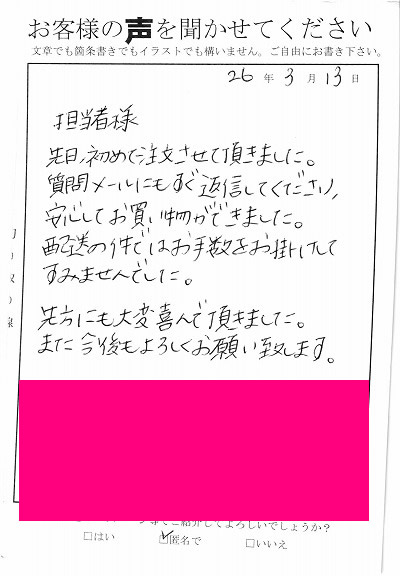 お客様の声を聞かせてください
文章でも箇条書きでもイラストでも構いません。ご自由にお書き下さい。
26年3月13日
担当者様
先日、初めて注文させて頂きました。
質問メールにもすぐ返信してくださり、
安心してお買い物ができました。
配送の件ではお手数をお掛けして
すみませんでした。
先方にも大変喜んで頂きました。
また今後もよろしくお願い致します。
ご紹介してよろしいでしょうか？
□はい ☑匿名で □いいえ